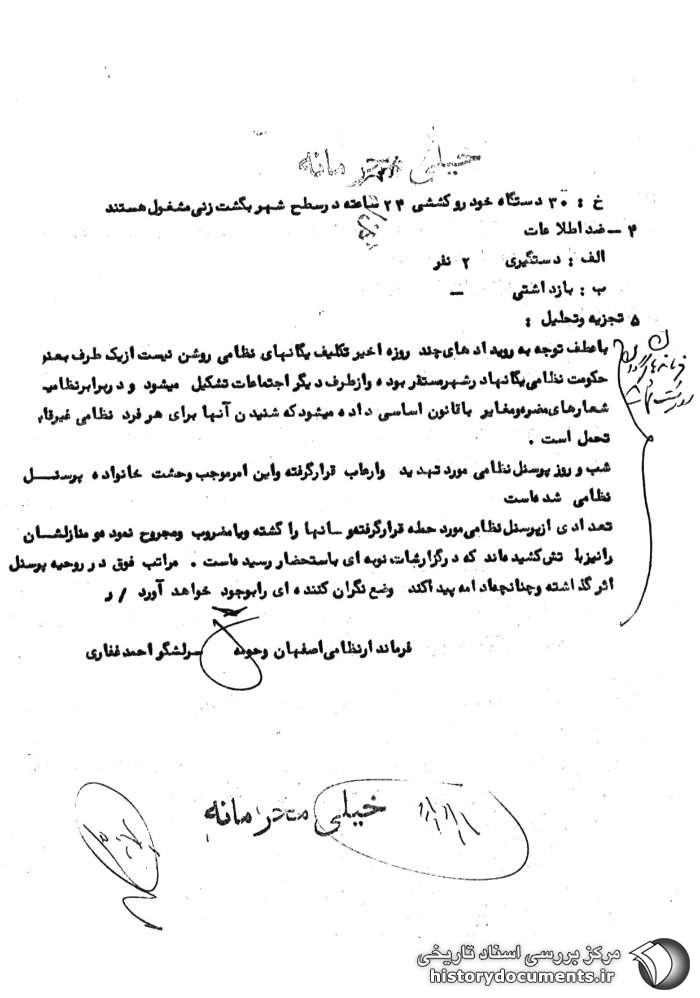 خیلی محرمانه
خ : ۳۰ دستگاه خودرو گشتی ۲۴ ساعته درسطح شهر بگشت زنی مشغول هستند
۴ ــ ضد اطلاعات
الف : دستگیری ۲ نفر
ب : بازداشتی ــ
۵ تجزیه وتحلیل :
باعطف توجه به رویدادهای چند روزه اخیر تکلیف یگانهای نظامی روشن نیست ازیک طرف بعنو
حکومت نظامی یگانهادرشهرمستقر بوده وازطرف دیگر اجتماعات تشکیل میشود و دربرابرنظامیـ
شعارهای مضره ومغایر باقانون اساسی داده میشود که شنیدن آنها برای هر فرد نظامی غیرقا
تحمل است .
شب و روز پرسنل نظامی مورد تهدید وارعاب قرارگرفته واین امرموجب وحشت خانواده پرسنــل
نظامی شده است
تعدادی ازپرسنل نظامی مورد حمله قرارگرفته و آنها را کشته ویا مضروب ومجروح نموده و منازلشان
رانیزبا تش کشیده اند که درگزارشات نوبه ای باستحضار رسیده است . مراتب فوق در روحیه پرسنل
اثر گذاشته وچنانچه ادامه پیدا کند وضع نگران کننده ای رابوجود خواهد آورد / ر
فرماندار نظامی اصفهان وحومه سرلشگر احمد غفاری
خیلی محرمانه
مرکز بررسی اسناد تاریخی
historydocuments.ir